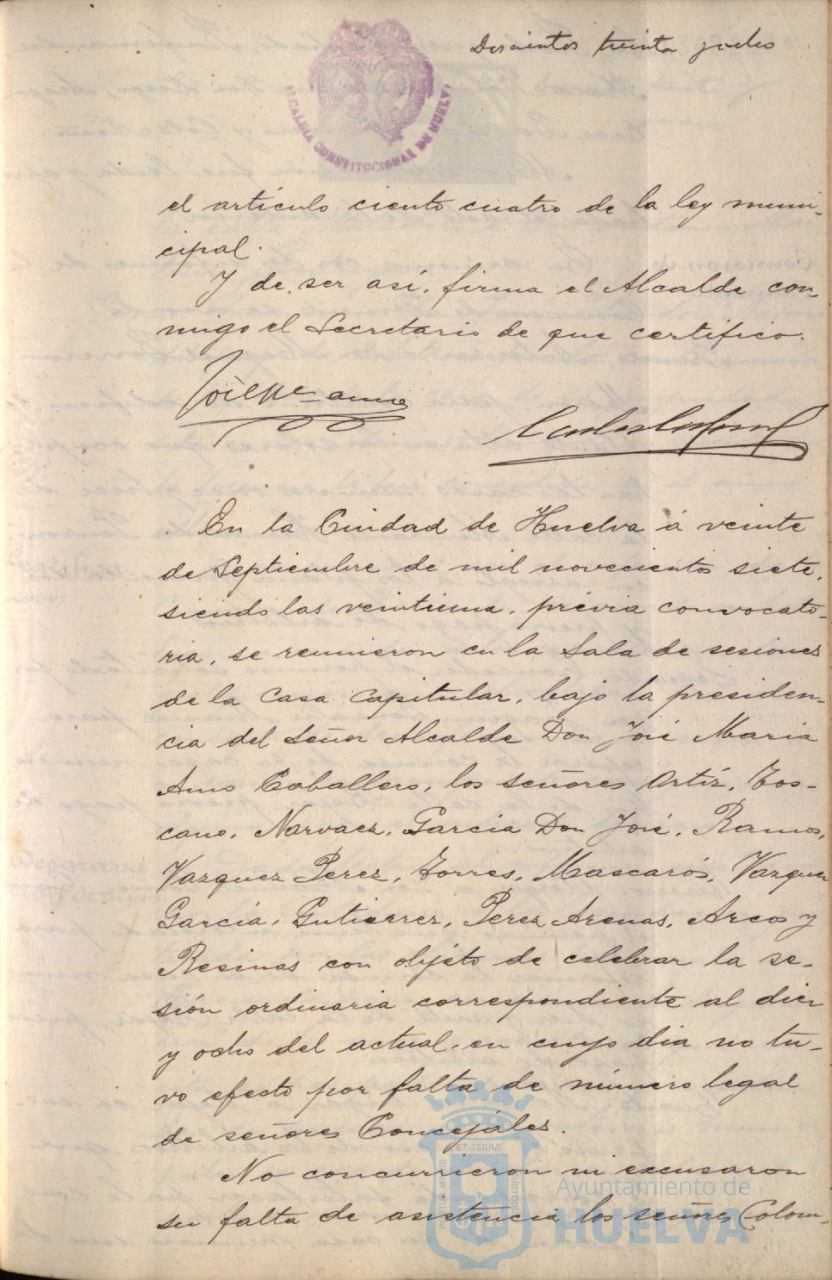 Doscientos treinta y ocho
ALCALDIA CONSTITUCIONAL DE HUELVA
el artículo ciento cuatro de la ley muni-
cipal.
Y de ser así, firma el Alcalde con-
migo el Secretario de que certifico.
En la Ciudad de Huelva á veinte
de Septiembre de mil novecientos siete,
siendo las veintiuna, prévia convocato-
ria, se reunieron en la Sala de sesiones
de la Casa Capitular, bajo la presiden-
cia del Señor Alcalde Don José Maria
Amo Caballero, los señores Ortiz, Tos-
cano, Narvaez, Garcia Don José, Ramos,
Vazquez Perez, Torres, Mascarós, Vazquez
García, Gutierrez, Perez Arenas, Arcos y
Resinas con objéto de celebrar la se-
sión ordinaria correspondiente al diez
y ocho del actual, en cuyo dia no tu-
vo efecto por falta de número legal
de señores Concejáles.
No concurrieron ni excusaron
su falta de asistencia los señores Colom-
Ayuntamiento de
HUELVA